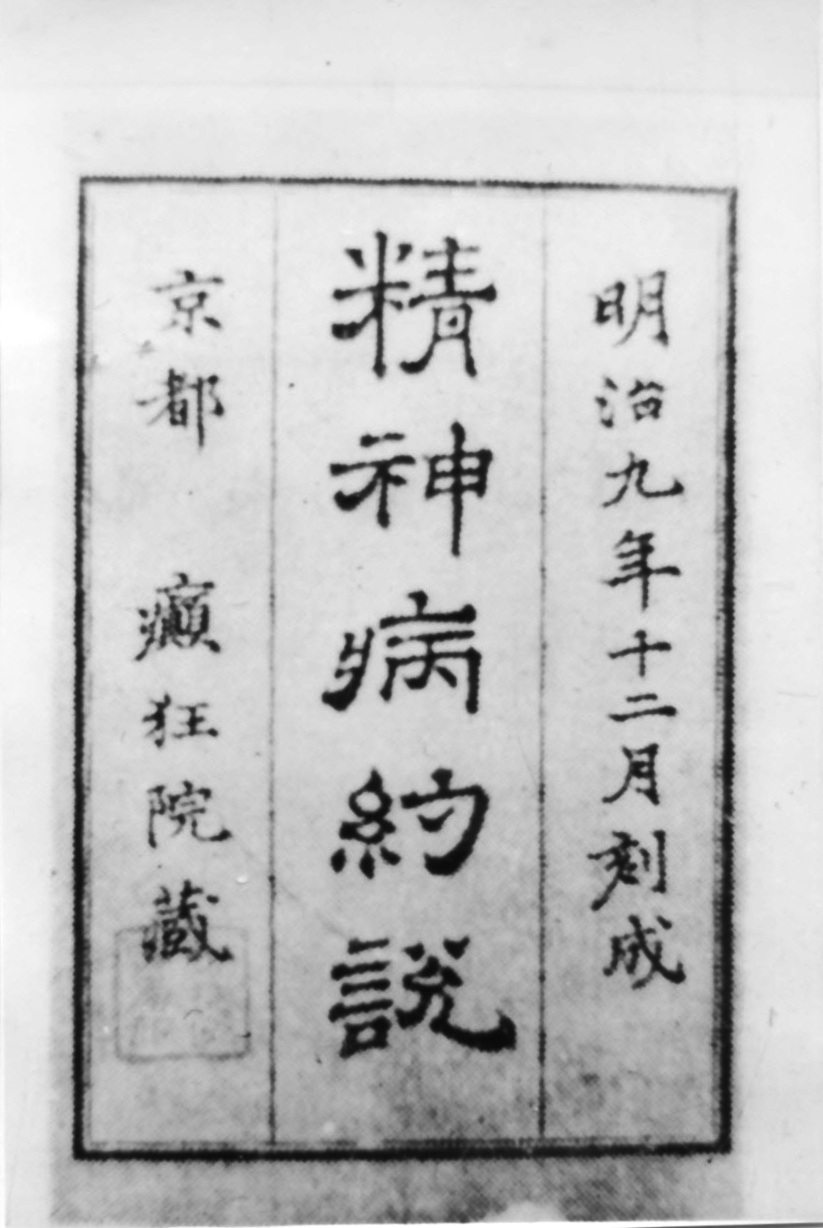 明治九年十二月刻成
精神病約說
京都 癲狂院藏